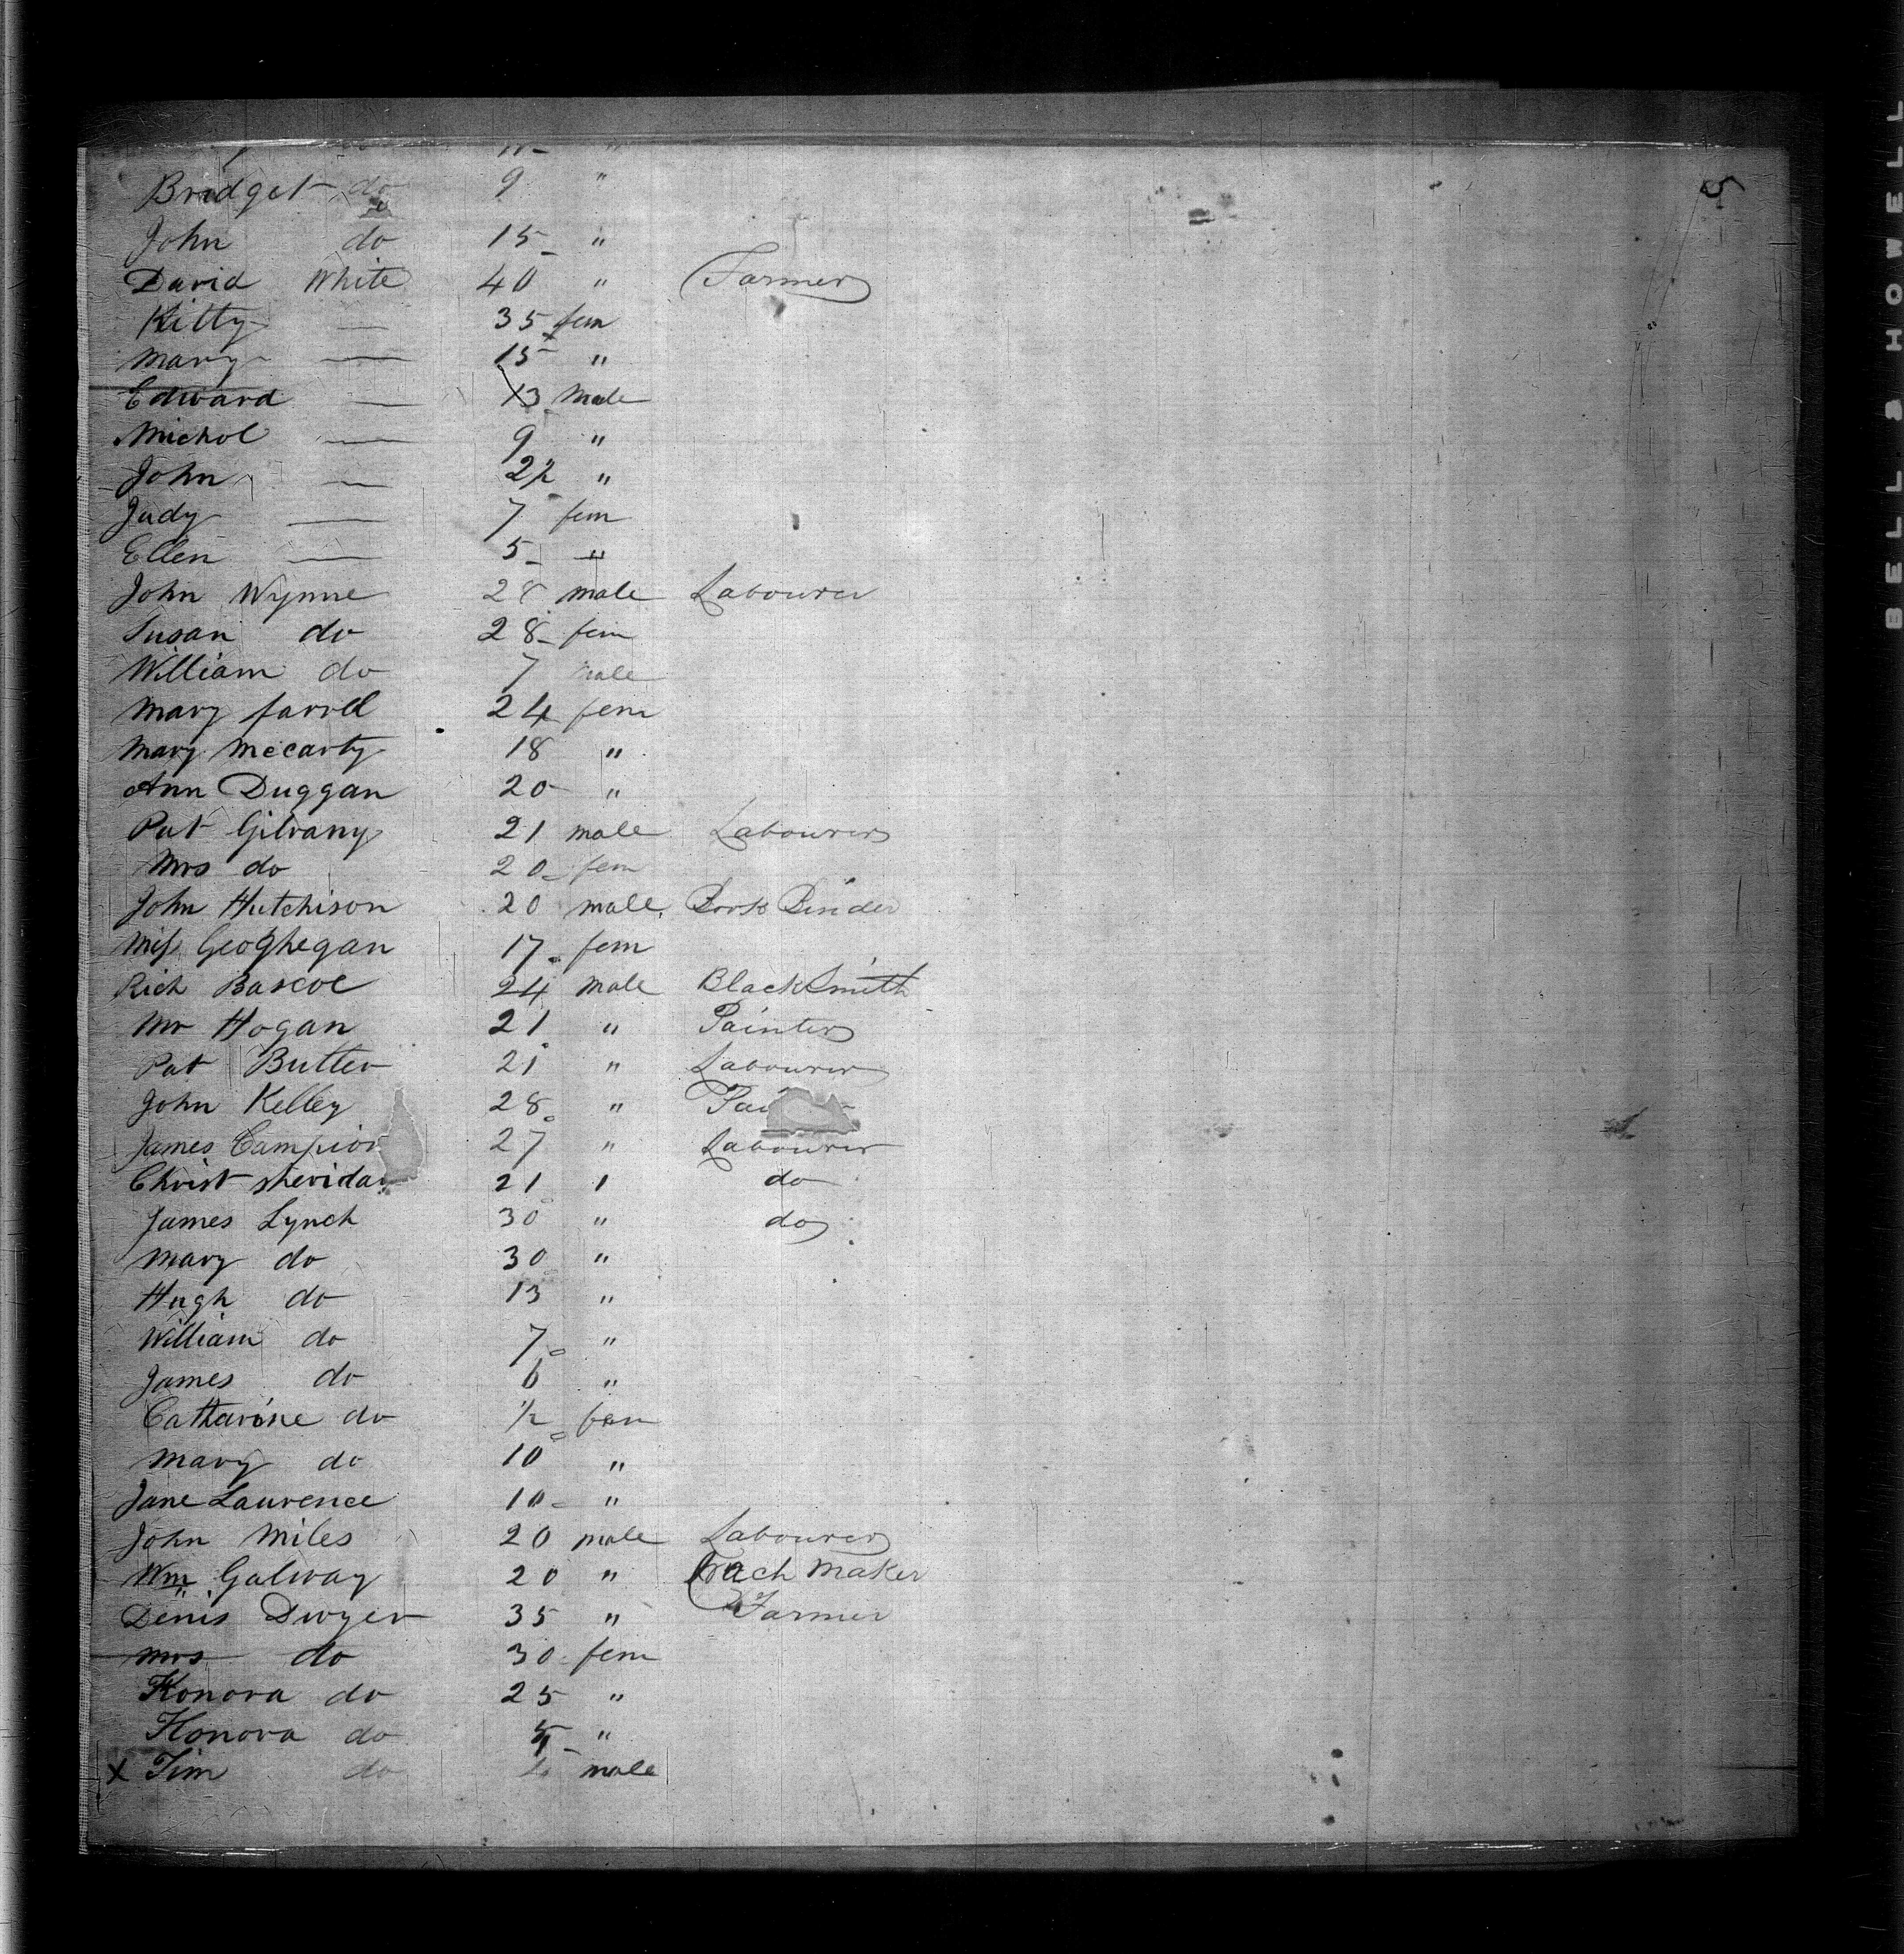 5
Bridget do 9 "
John do 15 "
David White 40 " Farmer
Kitty — 35 fem
Mary — 15 "
Edward — 13 Male
Michol — 9 "
John — 22 "
Judy — 7 fem
Ellen — 5 "
John Wynne 28 male Labourer
Susan do 28 fem
William do 7 male
Mary farrel 24 fem
Mary Mccarty 18 "
Ann Duggan 20 "
Pat Gilvany 21 male Labourer
Mrs do 20 fem
John Hutchison 20 male Book Binder
Miss Geoghegan 17 fem
Rich Bascoe 24 male BlackSmith
Mr Hogan 21 " Painter
Pat Butler 21 " Labourer
John Kelley 28 "
James Campion 27 " Labourer
Christ sheridan 21 " do
James Lynch 30 " do
Mary do 30 "
Hugh do 13 "
William do 7 "
James do 6 "
Catharine do 1/2 fem
Mary do 10 "
Jane Laurence 10 "
John Miles 20 male Labourer
Wm Galway 20 " Coach Maker
Denis Dwyer 35 " Farmer
Mrs do 30 fem
Honora do 25 "
Honora do "
X Tim do male
BELL & HOWELL